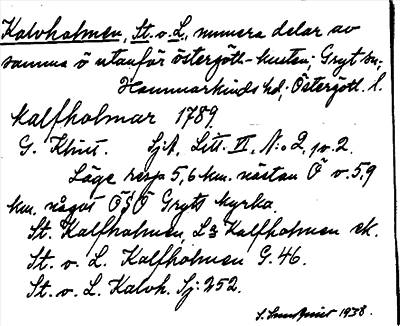 Kalvholmen, St. o. L., numera delar av
samma ö utanför östergötl-kusten; Gryt sn;
Hammarkinds hd; Östergötl. l.
Kalfholmar 1789
G. Klint. Sjk, Litt. II, N:o 2, p. 2.
Läge resp 5,6 km. nästan Ö o. 5,9
km. något ÖSÖ Gryts kyrka.
St. Kalfholmen, L:a Kalfholmen ek.
St. o. L. Kalfholmen G. 46.
St. o. L. Kalvh. Sj: 252.
1938.